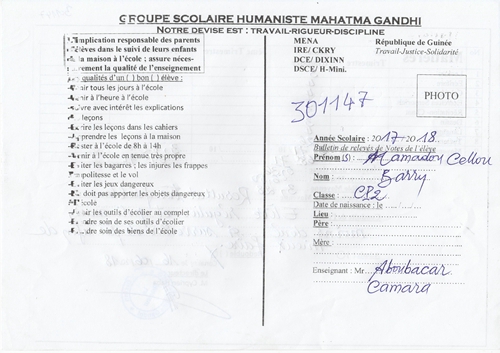 GROUPE SCOLAIRE HUMANISTE MAHATMA GANDHI
NOTRE DEVISE EST : TRAVAIL-RIGUEUR-DISCIPLINE
implication responsable des parents
élèves dans le suivi de leurs enfants
la maison à l'école ; assure néces-
rement la qualité de l'enseignement
qualités d'un ( ) bon ( ) élève :
nir tous les jours à l'école
nir à l'heure à l'école
vre avec intérêt les explications
leçons
rire les leçons dans les cahiers
prendre les leçons à la maison
ster à l'école de 8h à 14h
nir à l'école en tenue très propre
iter les bagarres ; les injures les frappes
politesse et le vol
iter les jeux dangereux
doit pas apporter les objets dangereux
l'école
oir les outils d'écolier au complet
ndre soin de ses outils d'écolier
ndre soin des biens de l'école
MENA
IRE/ CKRY
DCE/ DIXINN
DSCE/ H-Mini.
République de Guinée
Travail-Justice-Solidarité
301147
PHOTO
Année Scolaire : 2017-2018
Bulletin de relevés de Notes de l'élève
Prénom (S) : Mamadou Cellou
Nom : Barry
Classe : CP2
Date de naissance : le
Lieu
Père :
Mère :
Enseignant : Mr Aboubacar
Camara